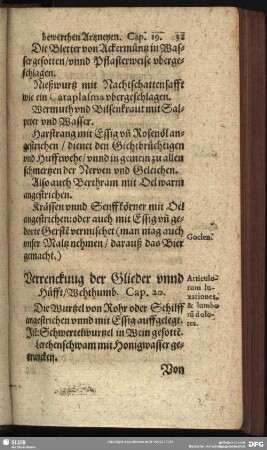 bewerthen Artzneyen. Cap. 19. 32
Die Bletter von Ackermüntz in Was-
ser gesotten / vnnd Pflasterweise vberge-
schlagen.
Nießwurtz mit Nachtschattensafft
wie ein Cataplasma vbergeschlagen.
Wermuth vnd Bilsenkraut mit Sal-
peter vnd Wasser.
Harstrang mit Essig vñ Rosenöl an-
gestrichen / dienet den Gichtbrüchtigen
vnd Hufftwehe / vnnd in gemein zu allen
schmertzen der Nerven vnd Geleichen.
Also auch Bertram mit Oel warm
angestrichen.
Krässen vnnd Senffkörner mit Oel
angestrichen: oder auch mit Essig vñ ge-
dörrte Gerste vermischet (man mag auch
vnser Maltz nehmen / darauß das Bier
gemacht.)
Goclen.
Verrenckung der Glieder vnnd
Hüfft / Wehthumb. Cap. 20.
Articulo-
rum lu-
xationes,
& lumbo
rũ dolo-
res.
Die Wurtzel von Rohr oder Schilff
angestrichen vnnd mit Essig auffgelegt.
Schwertelwurtzel in Wein gesotte.
Lerchenschwam mit Honigwasser ge-
truncken.
Von
SLUB
DFG